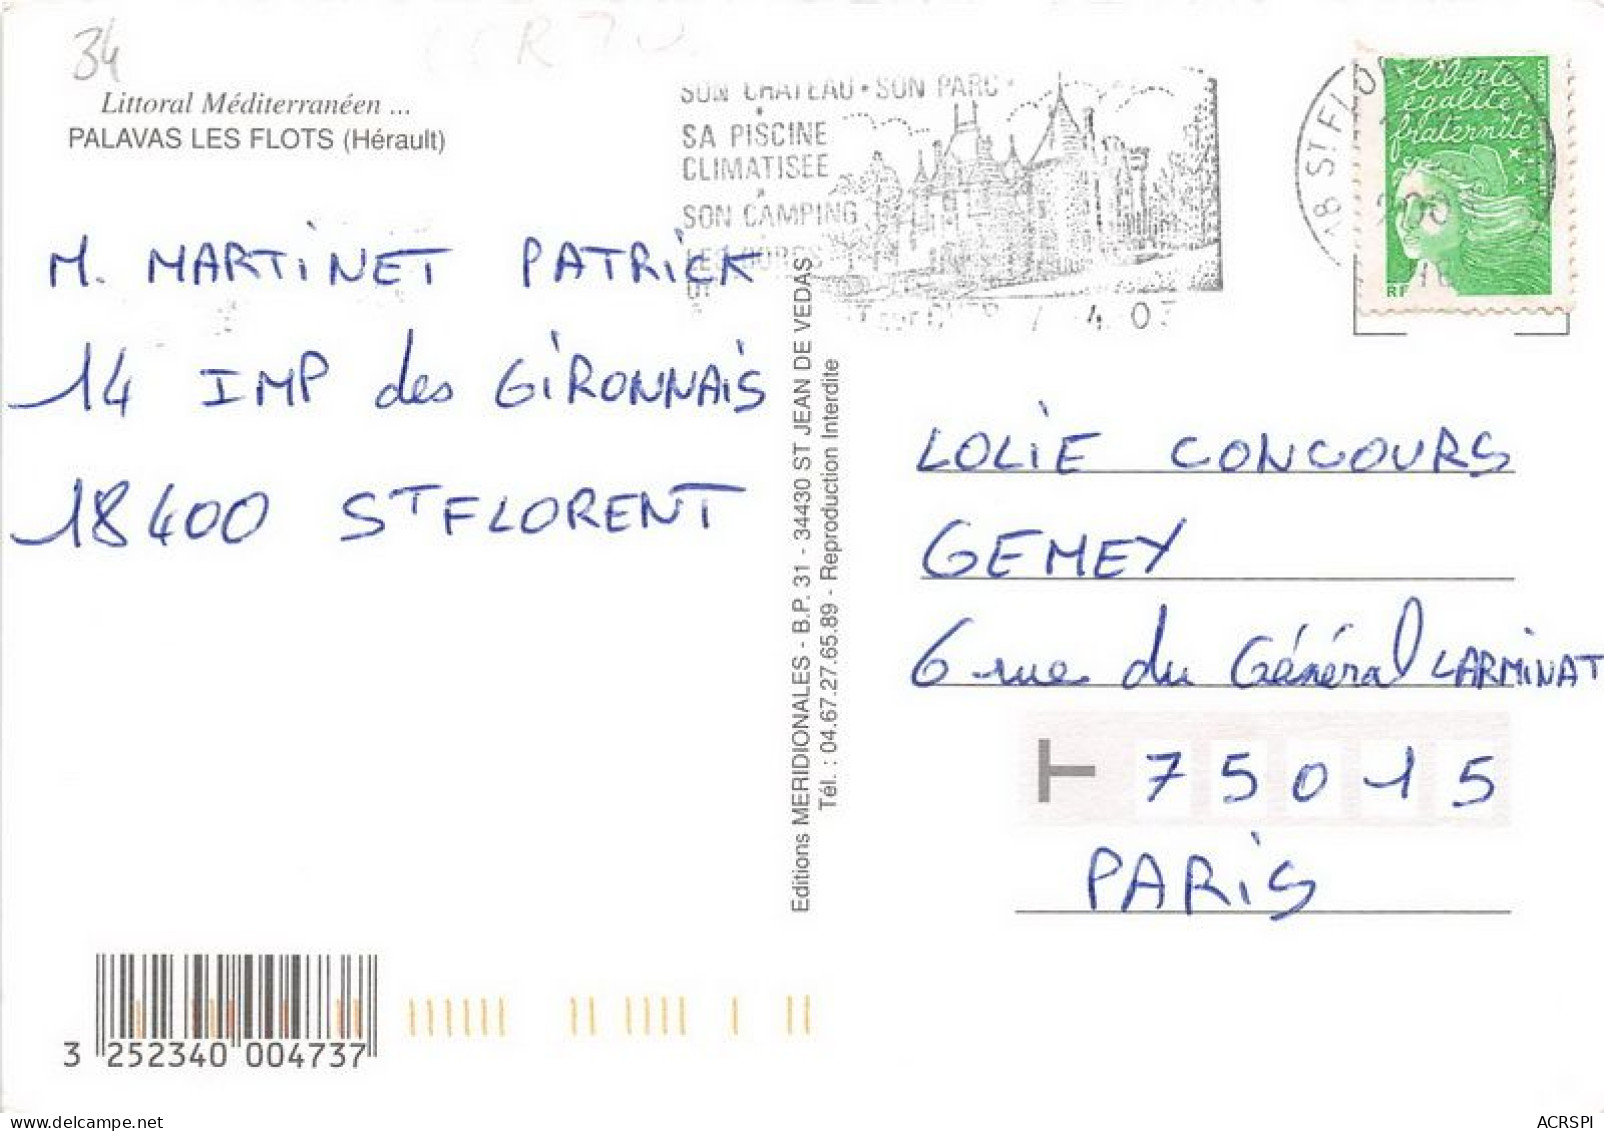 34
Littoral Méditerranéen ...
PALAVAS LES FLOTS (Hérault)
SON CHATEAU • SON PARC •
SA PISCINE
CLIMATISEE
SON CAMPING
18 ST FLO
liberté
égalité
fraternité
RF
M. MARTiNET PATRiCK
14 IMP des GiRONNAiS
18400 ST FLORENT
Editions MERIDIONALES - B.P. 31 - 34430 ST JEAN DE VEDAS
Tél. : 04.67.27.65.89 - Reproduction Interdite
LOLiE CONCOURS
GEMEY
6 rue du Général LARMiNAT
75015
PARiS
3 252340 004737
ACRSPI